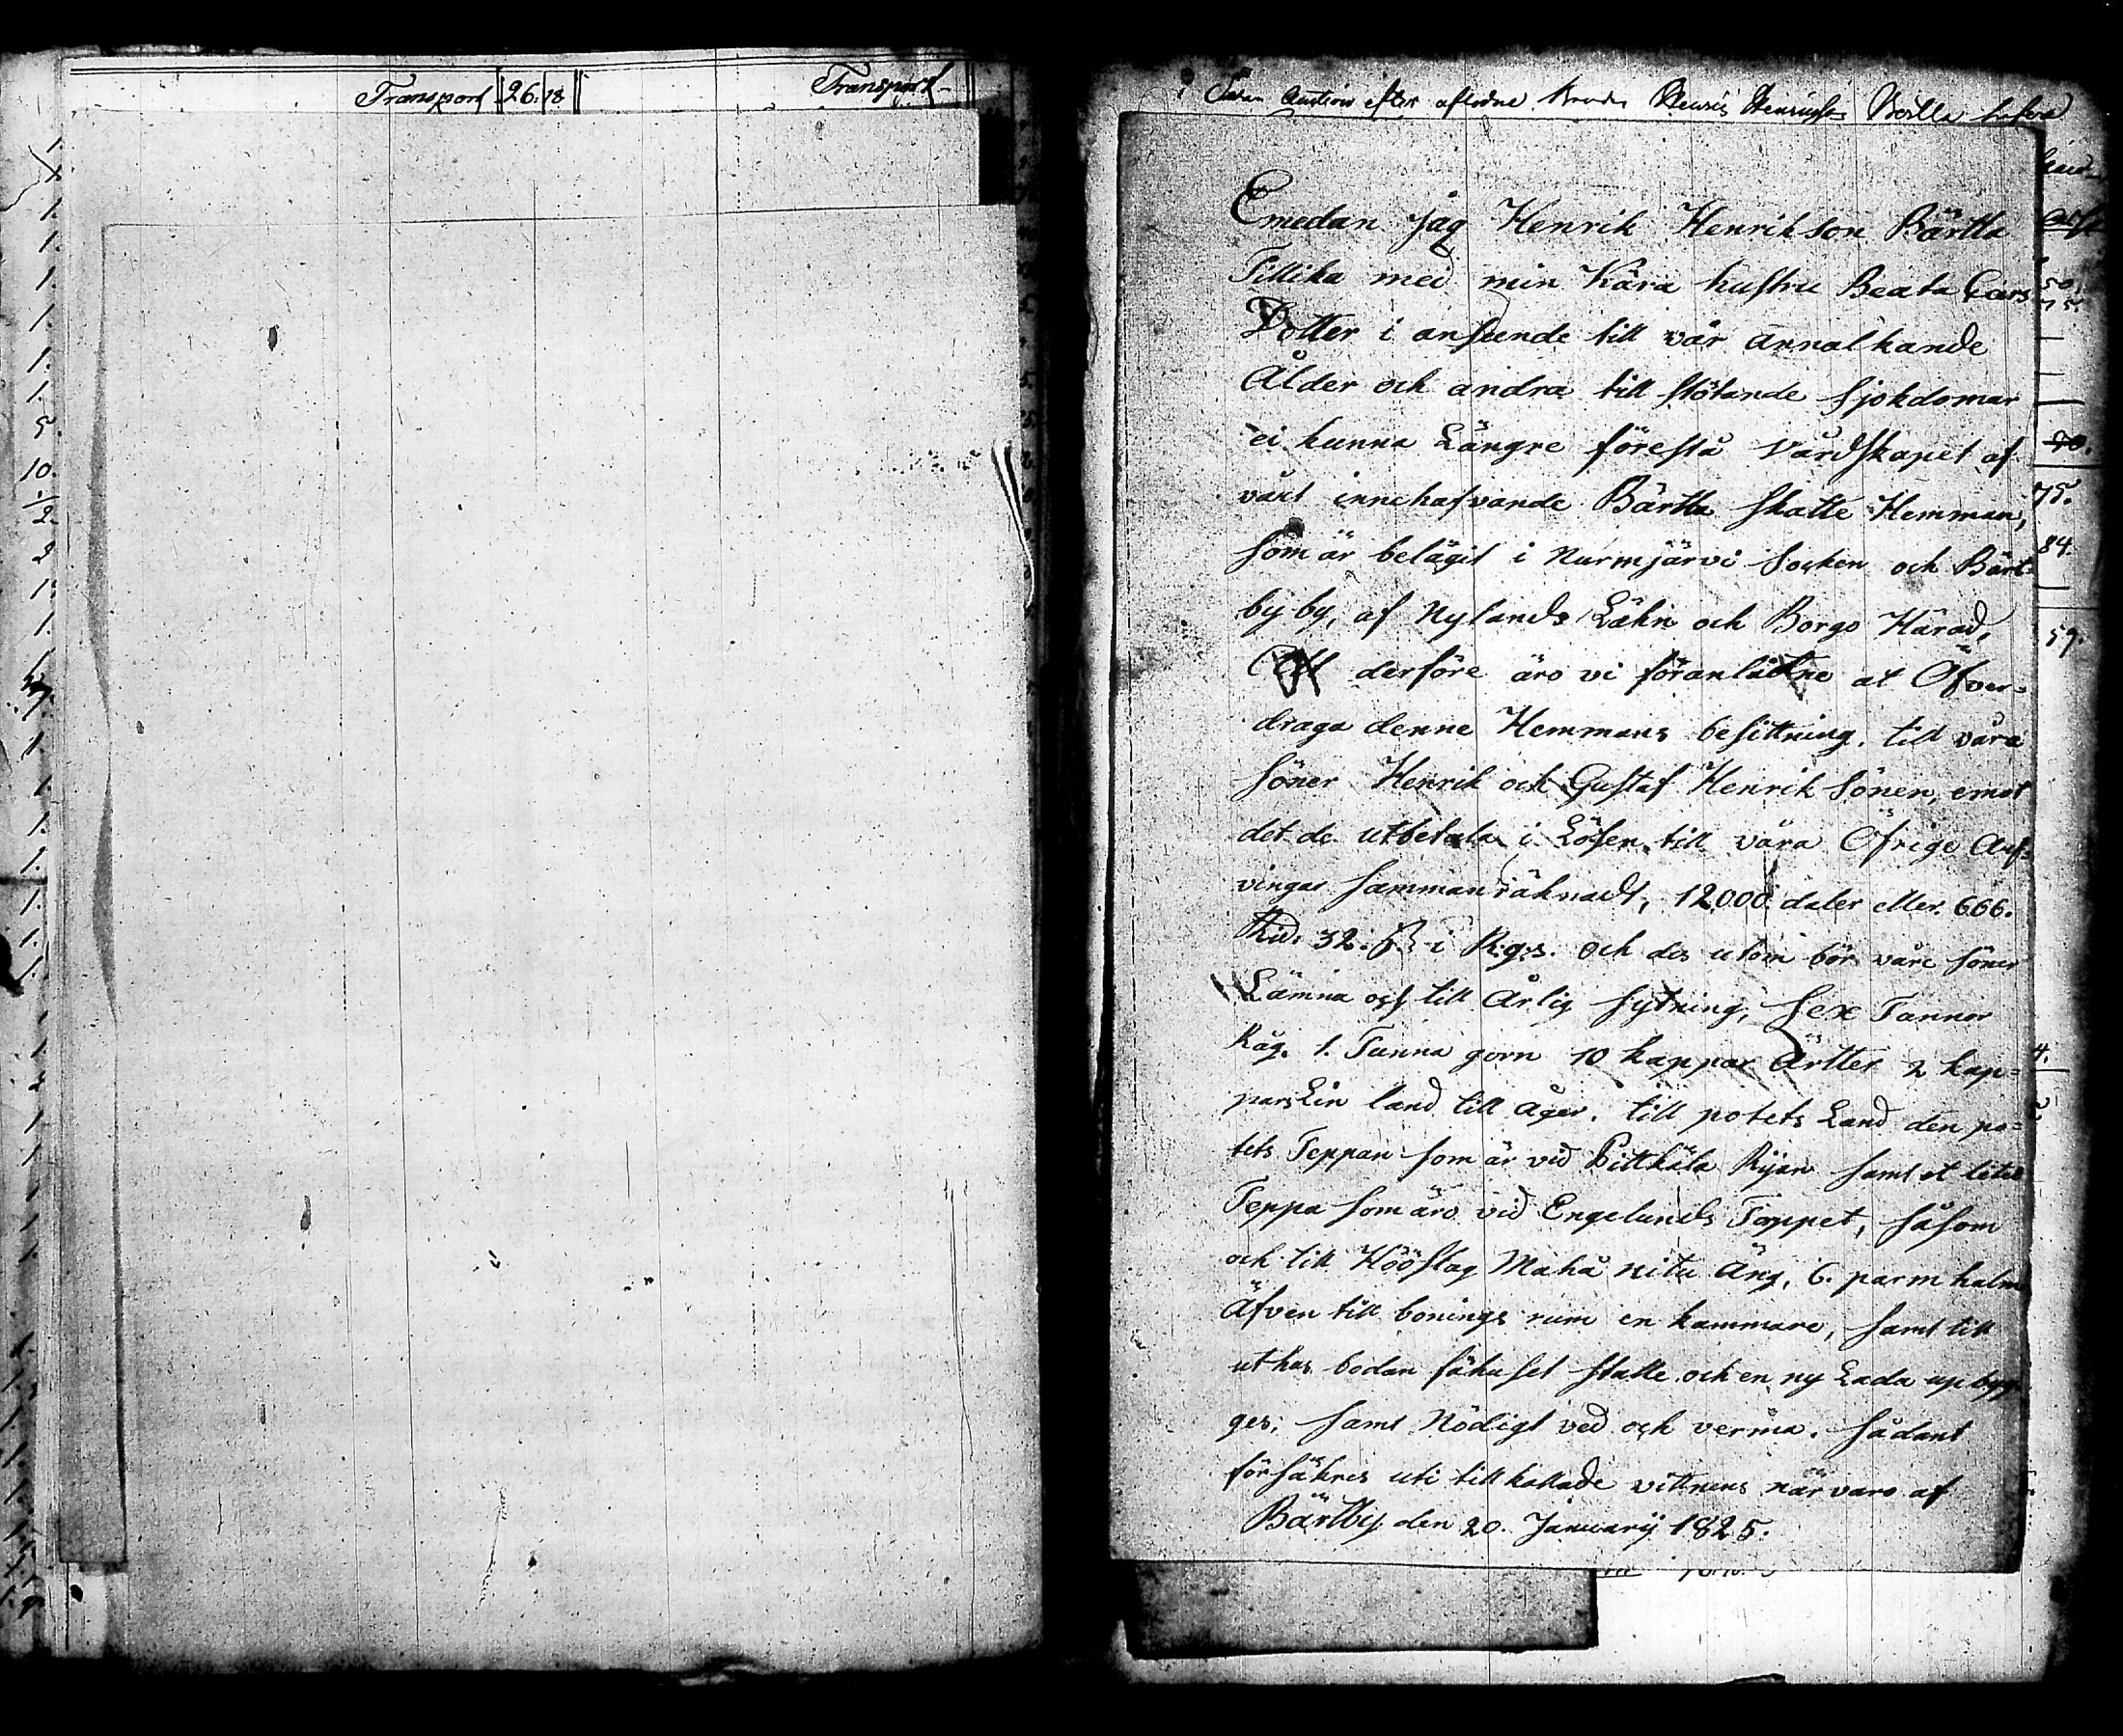 Transport 26. 18
Transport
1.
1.
1.
1.
1.
1.
1.
5.
10.
2.
2
1.
1.
1.
1.
1.
1.
1.
1.
Auction efter aflidne Henric Henricsson
Emedan Jag Henrik Henrikson Bärtla
Tillika med min Kära hustru Beata Lars
Dotter i anseende till vår annalkande
Ålder och andra till stötande sjokdomar
ei kunna Längre förestå Värdskapet af
vårt innehafvande Bärtla skatte Hemman,
som är belägit i Nurmjärvi socken och Bärt-
by by, af Nylands Lähn och Borgo Härad,
derföre äro vi föranlåtne at Öfver-
draga denne Hemmans besittning, till våra
söner Henrik och Gustaf Henrik sönen, emot
det de utbetala i Lösen till våra Öfrige Arf-
vingar sammanräknadt, 12000 daler eller 666.
Rid. 32. ß i R.g.s. och des utom bör våre söner
Lämna oss till Årlig sytning, sex Tannor
Råg. 1. Tunna gorn 10 kappar Ärtter 2 kap-
pars Lin land till åger. till potets Land den po-
tets Teppan som är vid Pittkäla Rijan samt et litet
Teppa som äro vid Engelunds Torppet, såsom
och till Hööslag Maha nitu Äng, 6. parm halm
Äfven till bonings rum en kammare, samt till
uthus bodan fähuset stalle och en ny Lada up byg-
ges, samt Nödigt ved och verma. sådant
försäkres uti tillkallade vittnens närvaro af
Bärtby den 20. Januarij 1825.
50.
75.
75.
84.
59.
4.